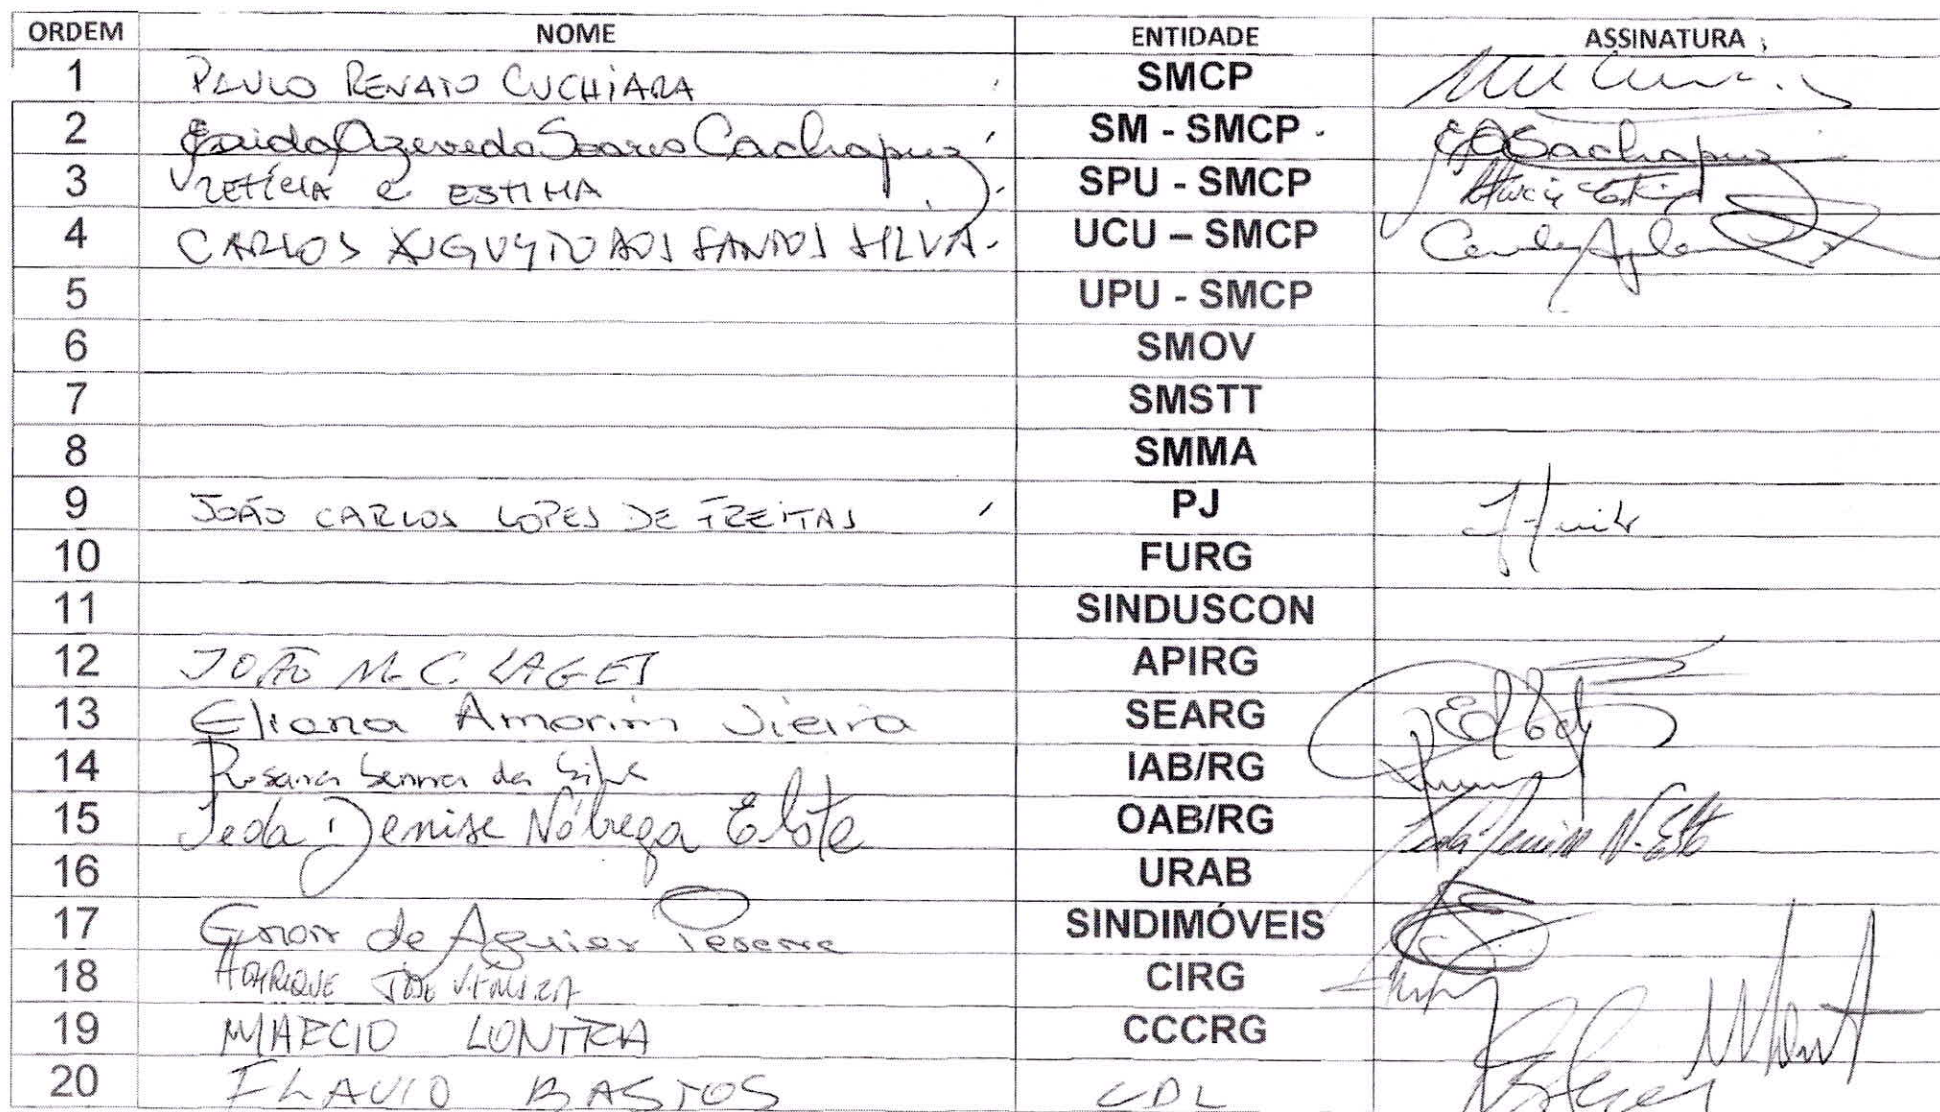 ORDEM NOME ENTIDADE ASSINATURA
1 PAULO RENATO CUCHIARA SMCP
2 Azevedo Soares Cachapuz SM - SMCP
3 LETÍCIA E ESTIMA SPU - SMCP
4 CARLOS AUGUSTO DOS SANTOS SILVA UCU – SMCP
5 UPU - SMCP
6 SMOV
7 SMSTT
8 SMMA
9 JOÃO CARLOS LOPES DE FREITAS PJ
10 FURG
11 SINDUSCON
12 JOÃO M. C. LAGES APIRG
13 Eliana Amorim Vieira SEARG
14 Rosana Senna da Silva IAB/RG
15 Ieda Denise Nóbrega Elste OAB/RG Ieda Denise N. Elste
16 URAB
17 de Aguiar SINDIMÓVEIS
18 HENRIQUE JOSÉ CIRG
19 MARCIO LONTRA CCCRG
20 FLAVIO BASTOS CDL